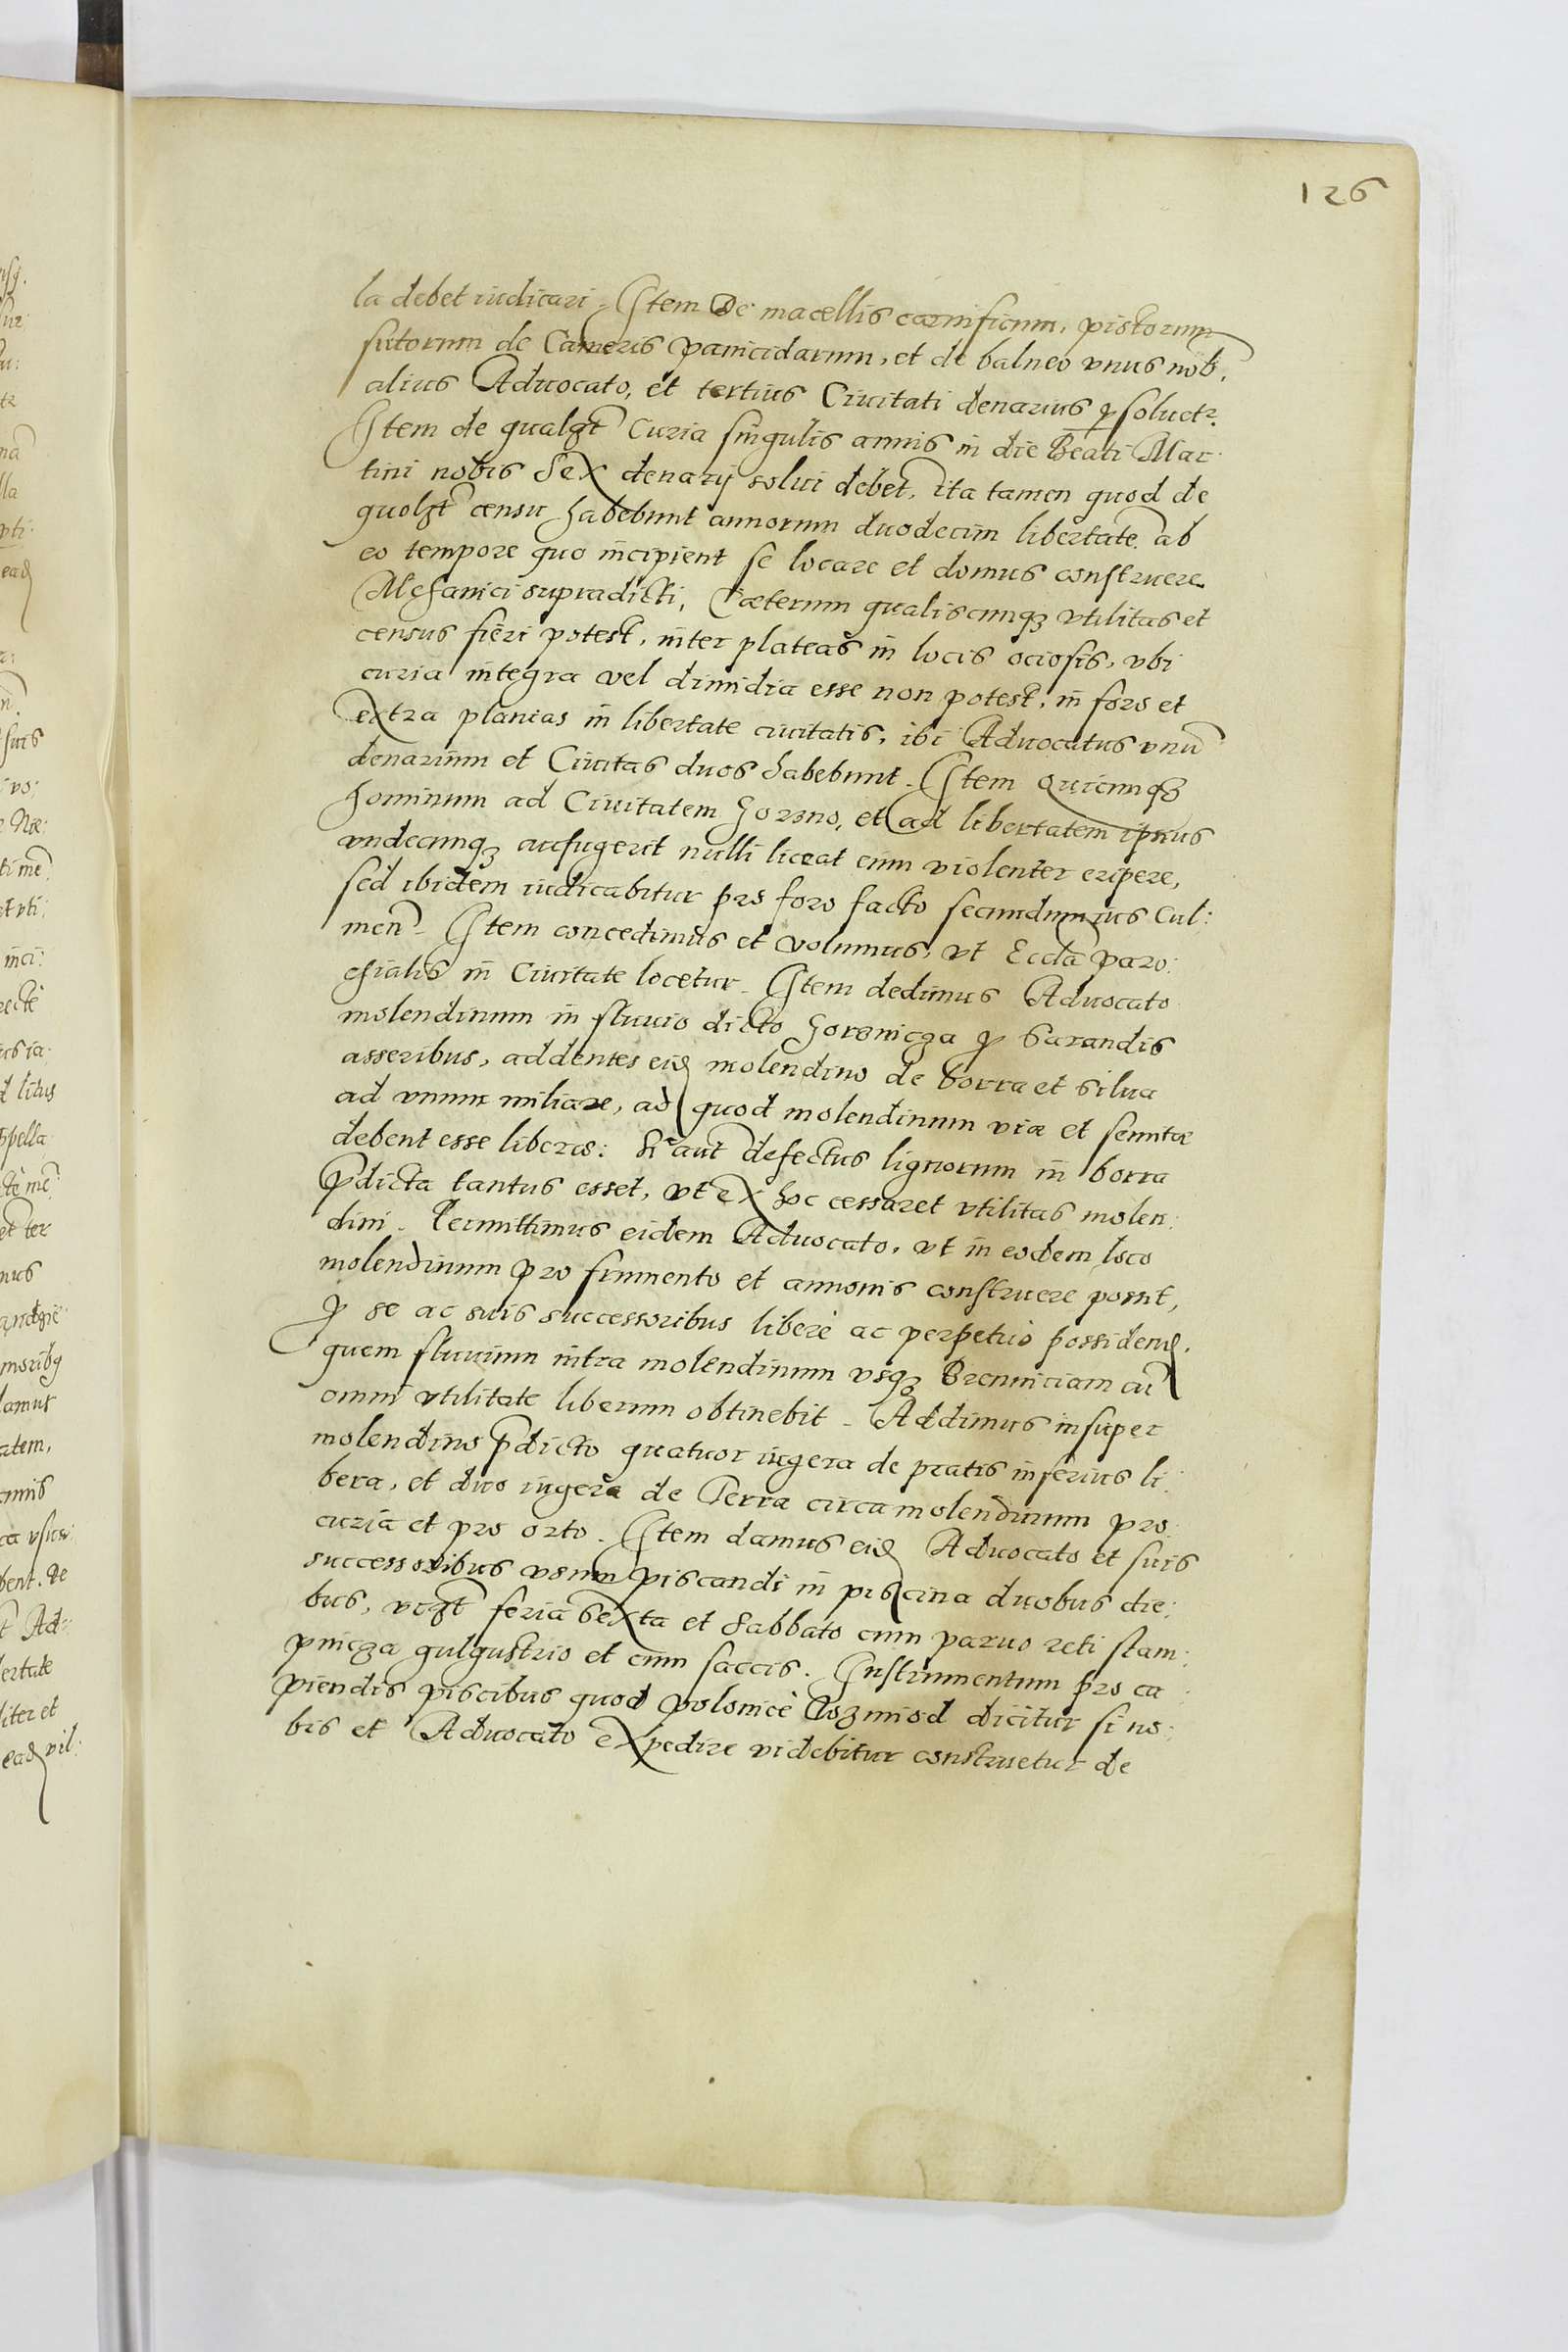 126
la debet iudicari. Item De macellis carnificum, pistorum
sutorum de Cameris pannicidarum, et de balneo vnus nob,
alius Aduocato, et tertius Ciuitati denarius ꝑsoluetr.
Item de qualꝫt Curia singulis annis in die Beati Mar
tini nobis Sex denarij solui debet, ita tamen quod de
quolꝫt censu habebunt annorum duodecim libertatē ab
eo tempore quo incipient se locare et domus construere.
Mechanici supradicti, Cæterum qualiscunqꝫ vtilitas et
census fieri potest, inter plateas in locis ociosis, vbi
curia integra vel dimidia esse non potest, in foro et
extra planias in libertate ciuitatis, ibi Aduocatus vnū
denarium et Ciuitas duos habebunt. Item Quicunqꝫ
hominum ad Ciuitatem Gorzno, et ad libertatem ipsius
vndecunqꝫ aufugerit nulli liceat eum violenter eripere,
sed ibidem iudicabitur pro foro facto secundum ius Cul:
men. Item concedimus et volumus, vt Eccla paro:
chialis in Ciuitate locetur. Item dedimus Aduocato
molendinum in fluuio dicto Gorznicza ꝑ Sarandis
asseribus, addentes eid molendino de borra et silua
ad vnum miliare, ad quod molendinum viæ et semitæ
debent esse liberæ: Si aut defectus lignorum in borra
p̄dicta tantus esset, vt ex hoc cessaret vtilitas molen:
dini. Permittimus eidem Aduocato, vt in eodem loco
molendinum pro frumento et annonis construere possit,
ꝑ se ac suis successoribus liberè ac perpetuò possidend.
quem fluuium intra molendinum vsqꝫ Brenniciam cū
omni vtilitate liberum obtinebit. Addimus insuper
molendino p̄dicto quatuor iugera de pratis inferius li:
bera, et duo iugera de Terra circa molendinum pro
curia et pro orto. Item damus eid Aduocato et suis
successoribus vsum piscandi in piscina duobus die:
bus, vꝫt feria Sexta et Sabbato cum paruo reti stam:
pnicza gulgustrio et cum saccis. Instrumentum pro ca:
piendis piscibus quod polonicè dicitur si no:
bis et Aduocato expedire videbitur construetur de